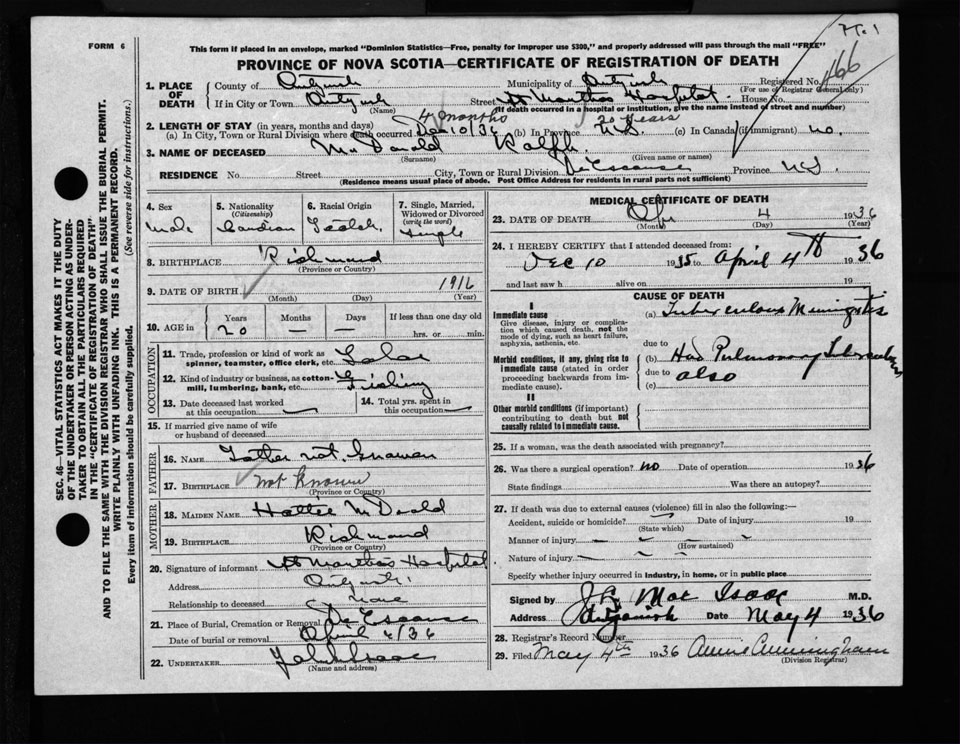 FORM 6
This form if placed in an envelope, marked "Dominion Statistics—Free, penalty for improper use $300," and properly addressed will pass through the mail "FREE"
PROVINCE OF NOVA SCOTIA—CERTIFICATE OF REGISTRATION OF DEATH
166
1. PLACE OF DEATH
County of Antignish
Municipality of Antignish
Registered No.
(For use of Registrar General only)
If in City or Town Antignish
(Name)
Street St Martha Hospital.
House No.
(If death occurred in a hospital or institution, give the name instead of street and number)
2. LENGTH OF STAY (in years, months and days)
(a) In City, Town or Rural Division where death occurred 4 months Dec 10/35
(b) In Province 20 years N.S.
(c) In Canada (if immigrant) no.
3. NAME OF DECEASED McDonald Ralph
(Surname)
(Given name or names)
RESIDENCE No. Street City, Town or Rural Division De Escousse Province N.S.
(Residence means usual place of abode. Post Office Address for residents in rural parts not sufficient)
4. Sex
male
5. Nationality
(Citizenship)
Canadian
6. Racial Origin
Scotch
7. Single, Married, Widowed or Divorced
(write the word)
Single
8. BIRTHPLACE Richmond
(Province or Country)
9. DATE OF BIRTH 1916
(Month) (Day) (Year)
10. AGE in
Years Months Days If less than one day old
20 — — hrs. or min.
OCCUPATION
11. Trade, profession or kind of work as spinner, teamster, office clerk, etc.
12. Kind of industry or business, as cotton-mill, lumbering, bank, etc. Fishing
13. Date deceased last worked at this occupation
14. Total yrs. spent in this occupation
15. If married give name of wife or husband of deceased
FATHER
16. NAME Father not known
17. BIRTHPLACE not known
(Province or Country)
MOTHER
18. MAIDEN NAME Hattie McDonald
19. BIRTHPLACE Richmond
(Province or Country)
20. Signature of informant St Martha's Hospital
Address Antignish
Relationship to deceased none
21. Place of Burial, Cremation or Removal De Escousse
Date of burial or removal April 6/36
22. UNDERTAKER John Isaac
(Name and address)
MEDICAL CERTIFICATE OF DEATH
23. DATE OF DEATH Apr 4 1936
(Month) (Day) (Year)
24. I HEREBY CERTIFY that I attended deceased from:
Dec 10 1935 to April 4th 1936
and last saw h alive on 19
CAUSE OF DEATH
I
Immediate cause
Give disease, injury or complication which caused death, not the mode of dying, such as heart failure, asphyxia, asthenia, etc.
(a) Tuberculous Meningitis
due to
Morbid conditions, if any, giving rise to immediate cause (stated in order proceeding backwards from immediate cause).
(b) Had Pulmonary Tuberculosis
due to also
(c)
II
Other morbid conditions (if important) contributing to death but not causally related to immediate cause.
25. If a woman, was the death associated with pregnancy?
26. Was there a surgical operation? no Date of operation 1936
State findings Was there an autopsy?
27. If death was due to external causes (violence) fill in also the following:—
Accident, suicide or homicide? Date of injury 19
(State which)
Manner of injury
(How sustained)
Nature of injury
Specify whether injury occurred in industry, in home, or in public place
Signed by Mac Isaac M.D.
Address Antigonish Date May 4 1936
28. Registrar's Record Number
29. Filed May 4th 1936 Annie Cunningham
(Division Registrar)
SEC. 46—VITAL STATISTICS ACT MAKES IT THE DUTY OF THE UNDERTAKER OR PERSON ACTING AS UNDERTAKER TO OBTAIN ALL THE PARTICULARS REQUIRED IN THE "CERTIFICATE OF REGISTRATION OF DEATH" AND TO FILE THE SAME WITH THE DIVISION REGISTRAR WHO SHALL ISSUE THE BURIAL PERMIT.
WRITE PLAINLY WITH UNFADING INK. THIS IS A PERMANENT RECORD.
Every item of information should be carefully supplied. (See reverse side for instructions.)